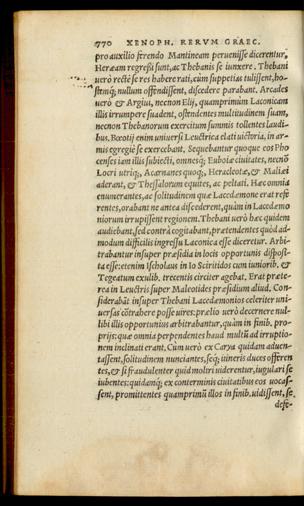 770 XENOPH. RERVM GRAEC.
pro auxilio ferendo Mantineam peruenisse dicerentur,
Heræam regressi sunt, ac Thebanis se iunxere. Thebani
uerò rectè se res habere rati, cùm suppetias tulissent, ho-
stemq; nullum offendissent, discedere parabant. Arcades
uerò & Argiui, necnon Elij, quamprimùm Laconicam
illis irrumpere suadent, ostendentes multitudinem suam,
necnon Thebanorum exercitum summis tollentes laudi-
bus. Bœotij enim uniuersi Leuctrica elati uictoria, in ar-
mis egregiè se exercebant. Sequebantur quoque eos Pho-
censes iam illis subiecti, omnesq; Euboiæ ciuitates, necnõ
Locri utriq;, Acarnanes quoq;, Heracleotæ, & Maliei
aderant, & Thessalorum equites, ac peltati. Hæc omnia
enumerantes, ac solitudinem quæ Lacedæmone erat refe
rentes, orabant ne antea discederent, quàm in Lacedæmo
niorum irrupissent regionem. Thebani uerò hæc quidem
audiebant, sed contrà cogitabant, prætendentes quòd ad-
modum difficilis ingressu Laconica esse diceretur. Arbi-
trabantur insuper præsidia in locis opportunis disposi-
ta esse: etenim Ischolaus in Io Sciritidos cum iuniorib. &
Tegeatum exulib. trecentis circiter agebat. Erat præte-
rea in Leuctris super Maleotides præsidium aliud. Con-
siderabãt insuper Thebani Lacedæmonios celeriter uni-
uersas cõtrahere posse uires: prælio uerò decernere nul-
libi illis opportunius arbitrabantur, quàm in finib. pro-
prijs: quæ omnia perpendentes haud multũ ad irruptio-
nem inclinati erant. Cùm uerò ex Carya quidam aduen-
tassent, solitudinem nunciantes, seq; itineris duces offeren
tes, & si fraudulenter quid moliri uiderentur, iugulari se
iubentes: quidamq; ex conterminis ciuitatibus eos uocas-
sent, promittentes quamprimũ illos in finib. uidissent, se
defe-